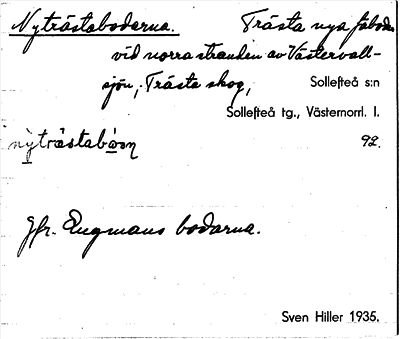 Nyträstabodarna. Trästa nya fäbodar
vid norra stranden av Västervall-
sjön, Trästa skog, Sollefteå s:n
Sollefteå tg., Västernorrl. l.
nyträstabòan 92.
Jfr. Engmans bodarna.
Sven Hiller 1935.